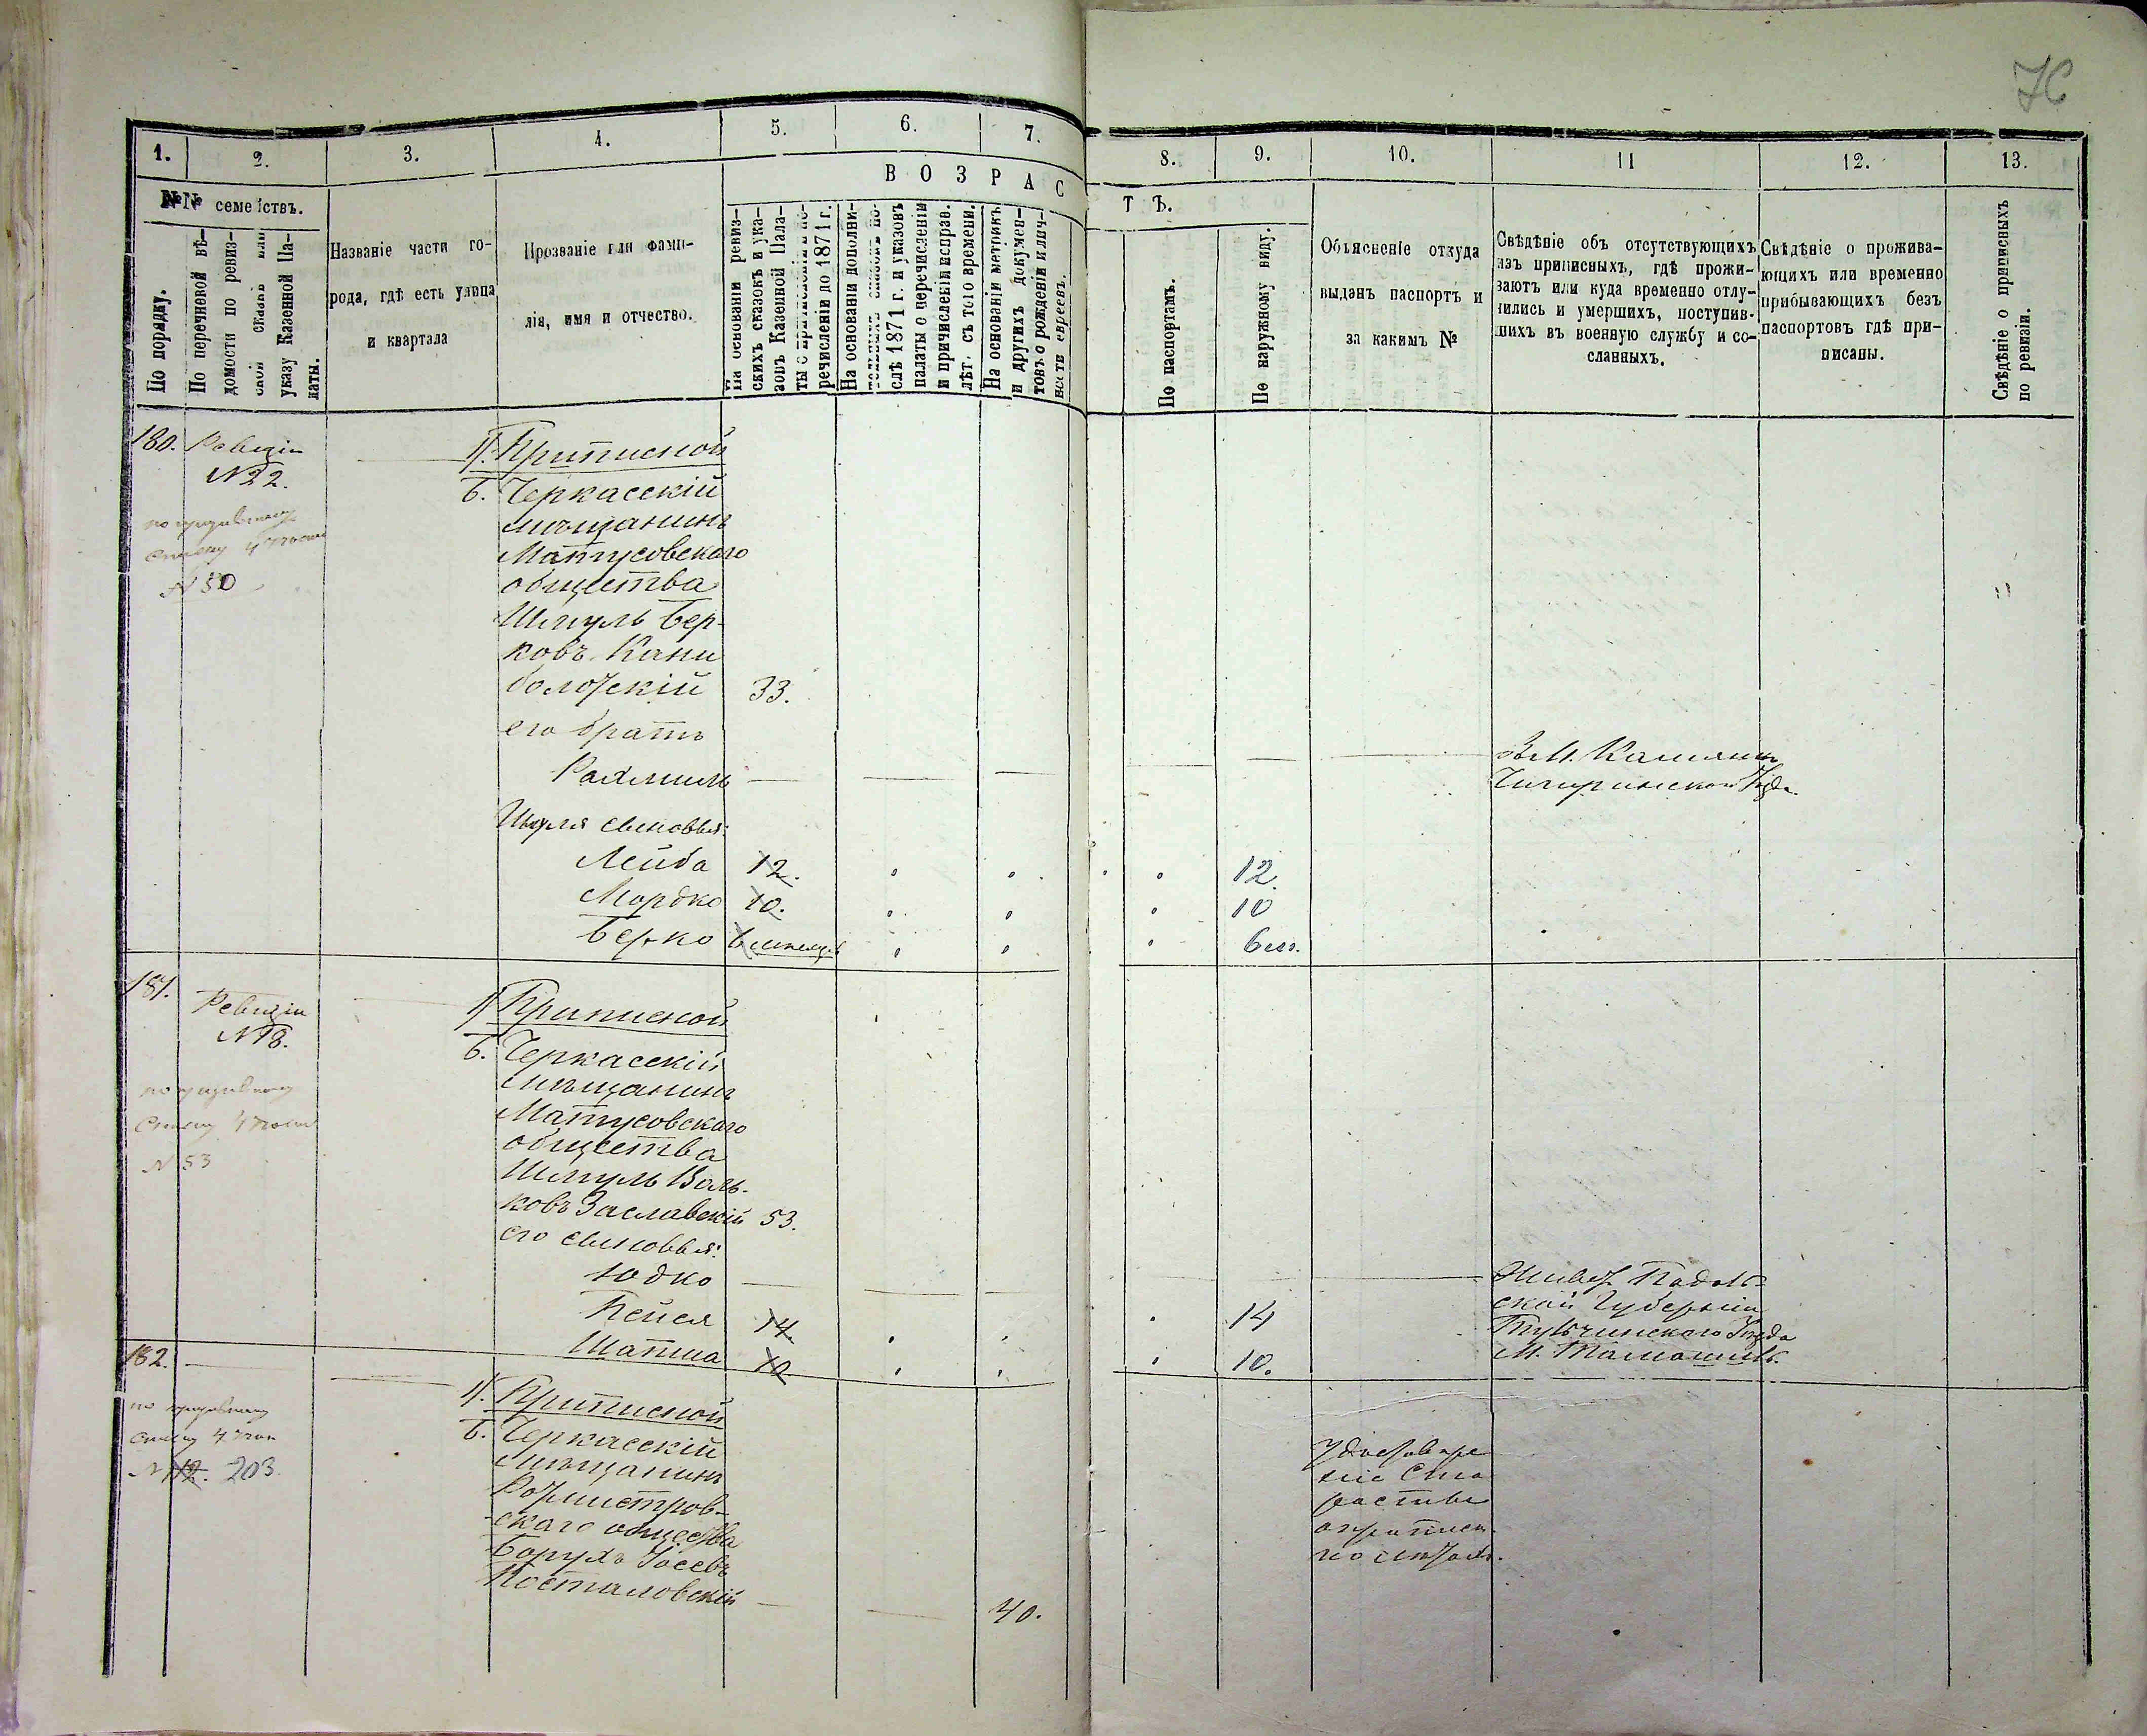 76
1.
2.
3.
4.
5.
6.
7.
8.
9.
10.
11
12.
13.
ВОЗРАС
ТЪ.
№№ семействъ.
По порядку.
По перечневой вѣ-
домости по ревиз-
ской сказкѣ или
указу Казенной Па-
латы.
Названіе части го-
рода, гдѣ есть улица
и квартала
Прозваніе или фами-
лія, имя и отчество.
На основаніи ревиз-
скихъ сказокъ и ука-
зовъ Казенной Пала-
речисленіи до 1871 г.
На основаніи дополни-
слѣ 1871 г. и указовъ
палаты о перечисленіи
и причисленіи исправ.
лѣт. съ того времени.
На основаніи метрикъ
и другихъ докумен-
товъ о рожденіи и лич-
ности евреевъ.
По паспортамъ.
По наружному виду.
Объясненіе откуда
выданъ паспортъ и
за какимъ №
Свѣдѣніе объ отсутствующихъ
изъ приписныхъ, гдѣ прожи-
ваютъ или куда временно отлу-
чились и умершихъ, поступив-
шихъ въ военную службу и со-
сланныхъ.
Свѣдѣніе о прожива-
ющихъ или временно
прибывающихъ безъ
паспортовъ гдѣ при-
писаны.
Свѣдѣніе о приписныхъ
по ревизіи.
180. Ревизіи
№ 22.
по призывному
списку 4 участ
№ 50
1/. Приписной
Б. Черкасскій
мѣщанинъ
Матусовскаго
общества
Шмуль Бер-
ковъ Кани
болотскій 33.
его братъ
Рахмиль
В М. Камянкѣ
Чигиринскаго Уѣзда.
Шмуля сыновья:
Лейба 12. 12.
Мордко 10. 10
Берко 6 мѣсяцев 6 мѣс.
181. Ревизіи
№ 18.
по призывному
списку 4 участ
№ 53
1/ Приписной
Б. Черкасскій
мѣщанинъ
Матусовскаго
общества
Шмуль Воль-
ковъ Заславскій 53.
его сыновья:
Юдко
Живет Подоль
ской Губерніи
Тульчинскаго Уѣзда
М. Томашполь.
Пейся 14. 14
Шапша 10 10.
182.
по призывному
списку 4 участ
№ 112. 203.
1/. Приписной
Б. Черкасскій
мѣщанинъ
Ротмистров-
скаго общества
Борухъ Іосевъ
Посталовскій 40.
Удостовѣре
ніе Ста
росты
о приписи
по мѣтрик.